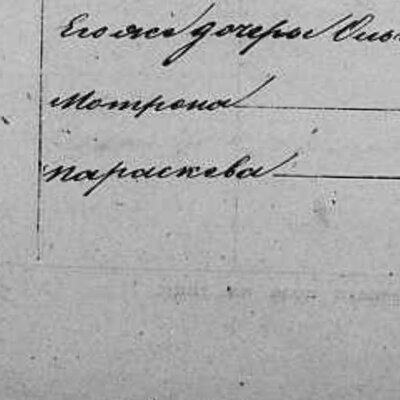 Его же дочеры Оль
Мотрона
параскева